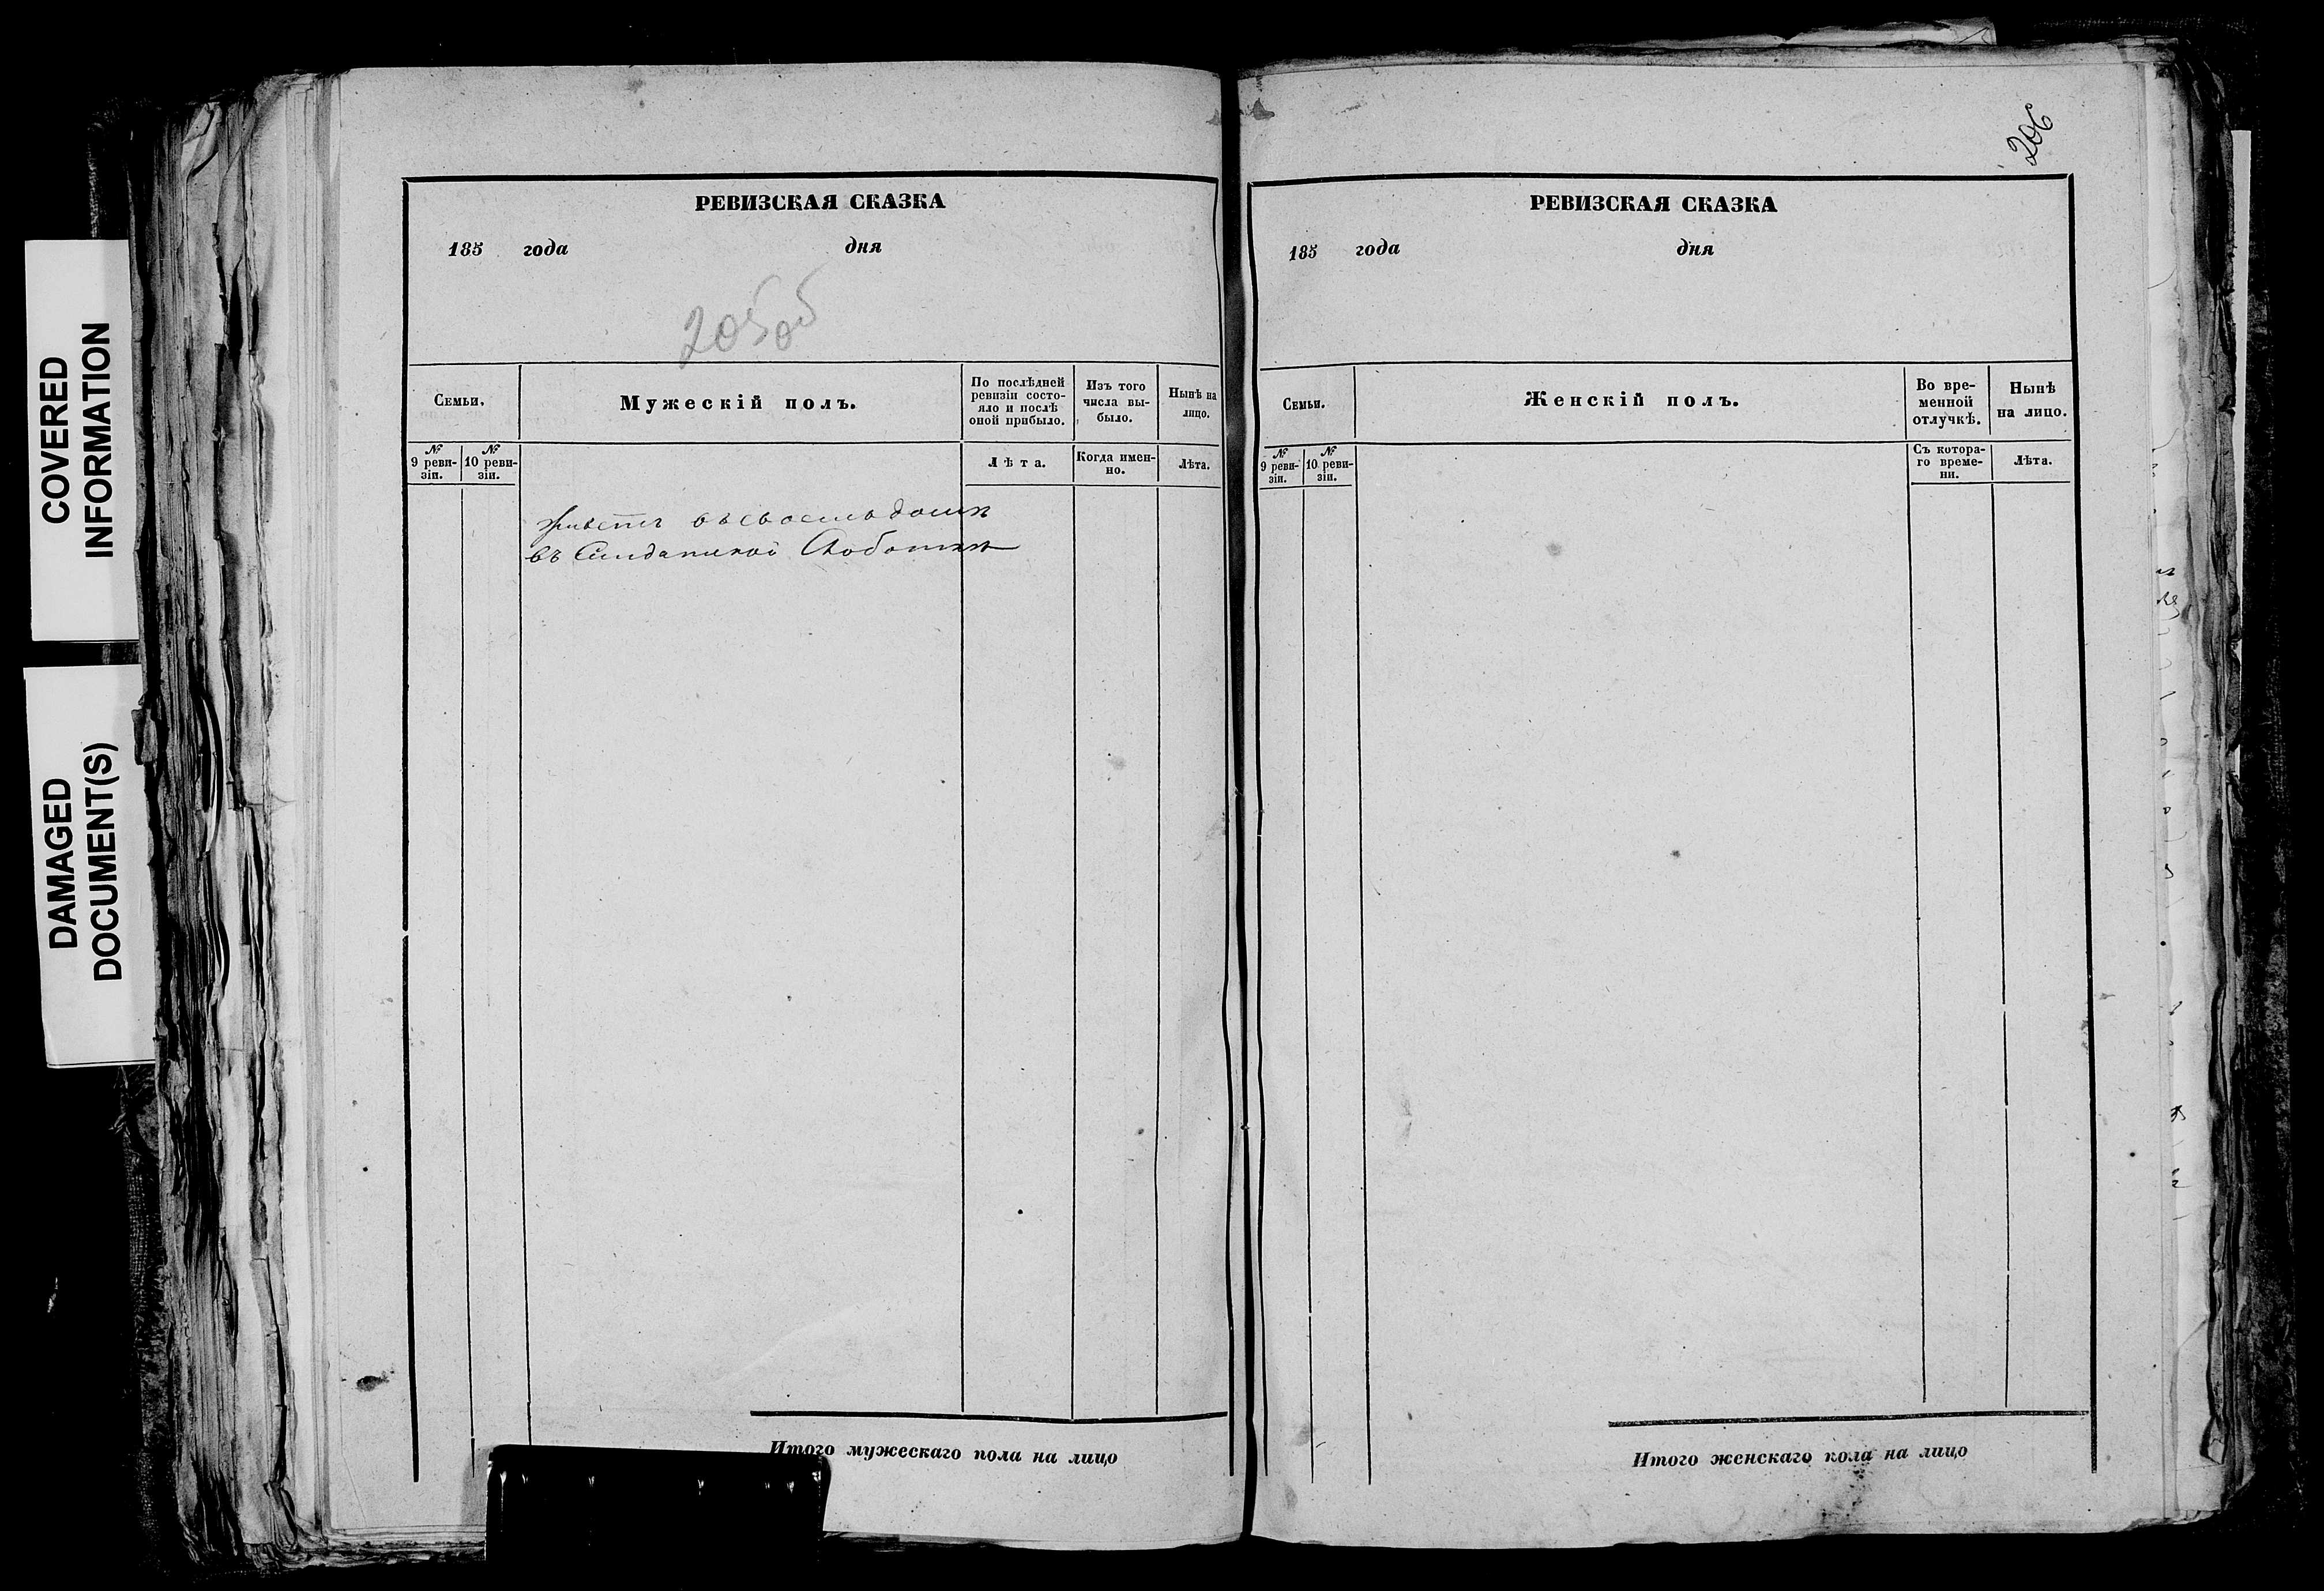 COVERED
INFORMATION
DAMAGED
DOCUMENT(S)
РЕВИЗСКАЯ СКАЗКА
185 года дня
205об
Семьи.
Мужескій полъ.
По послѣдней
ревизіи состо-
яло и послѣ
оной прибыло.
Изъ того
числа вы-
было.
Нынѣ на
лицо.
№
9 реви-
зіи.
№
10 реви-
зіи.
Лѣта.
Когда имен-
но.
Лѣта.
живетъ въ своемъ домѣ
въ Слободкѣ
Итого мужескаго пола на лицо
206
РЕВИЗСКАЯ СКАЗКА
185 года дня
Семьи.
Женскій полъ.
Во вре-
менной
отлучкѣ.
Нынѣ
на лицо.
№
9 реви-
зіи.
№
10 реви-
зіи.
Съ котора-
го време-
ни.
Лѣта.
Итого женскаго пола на лицо